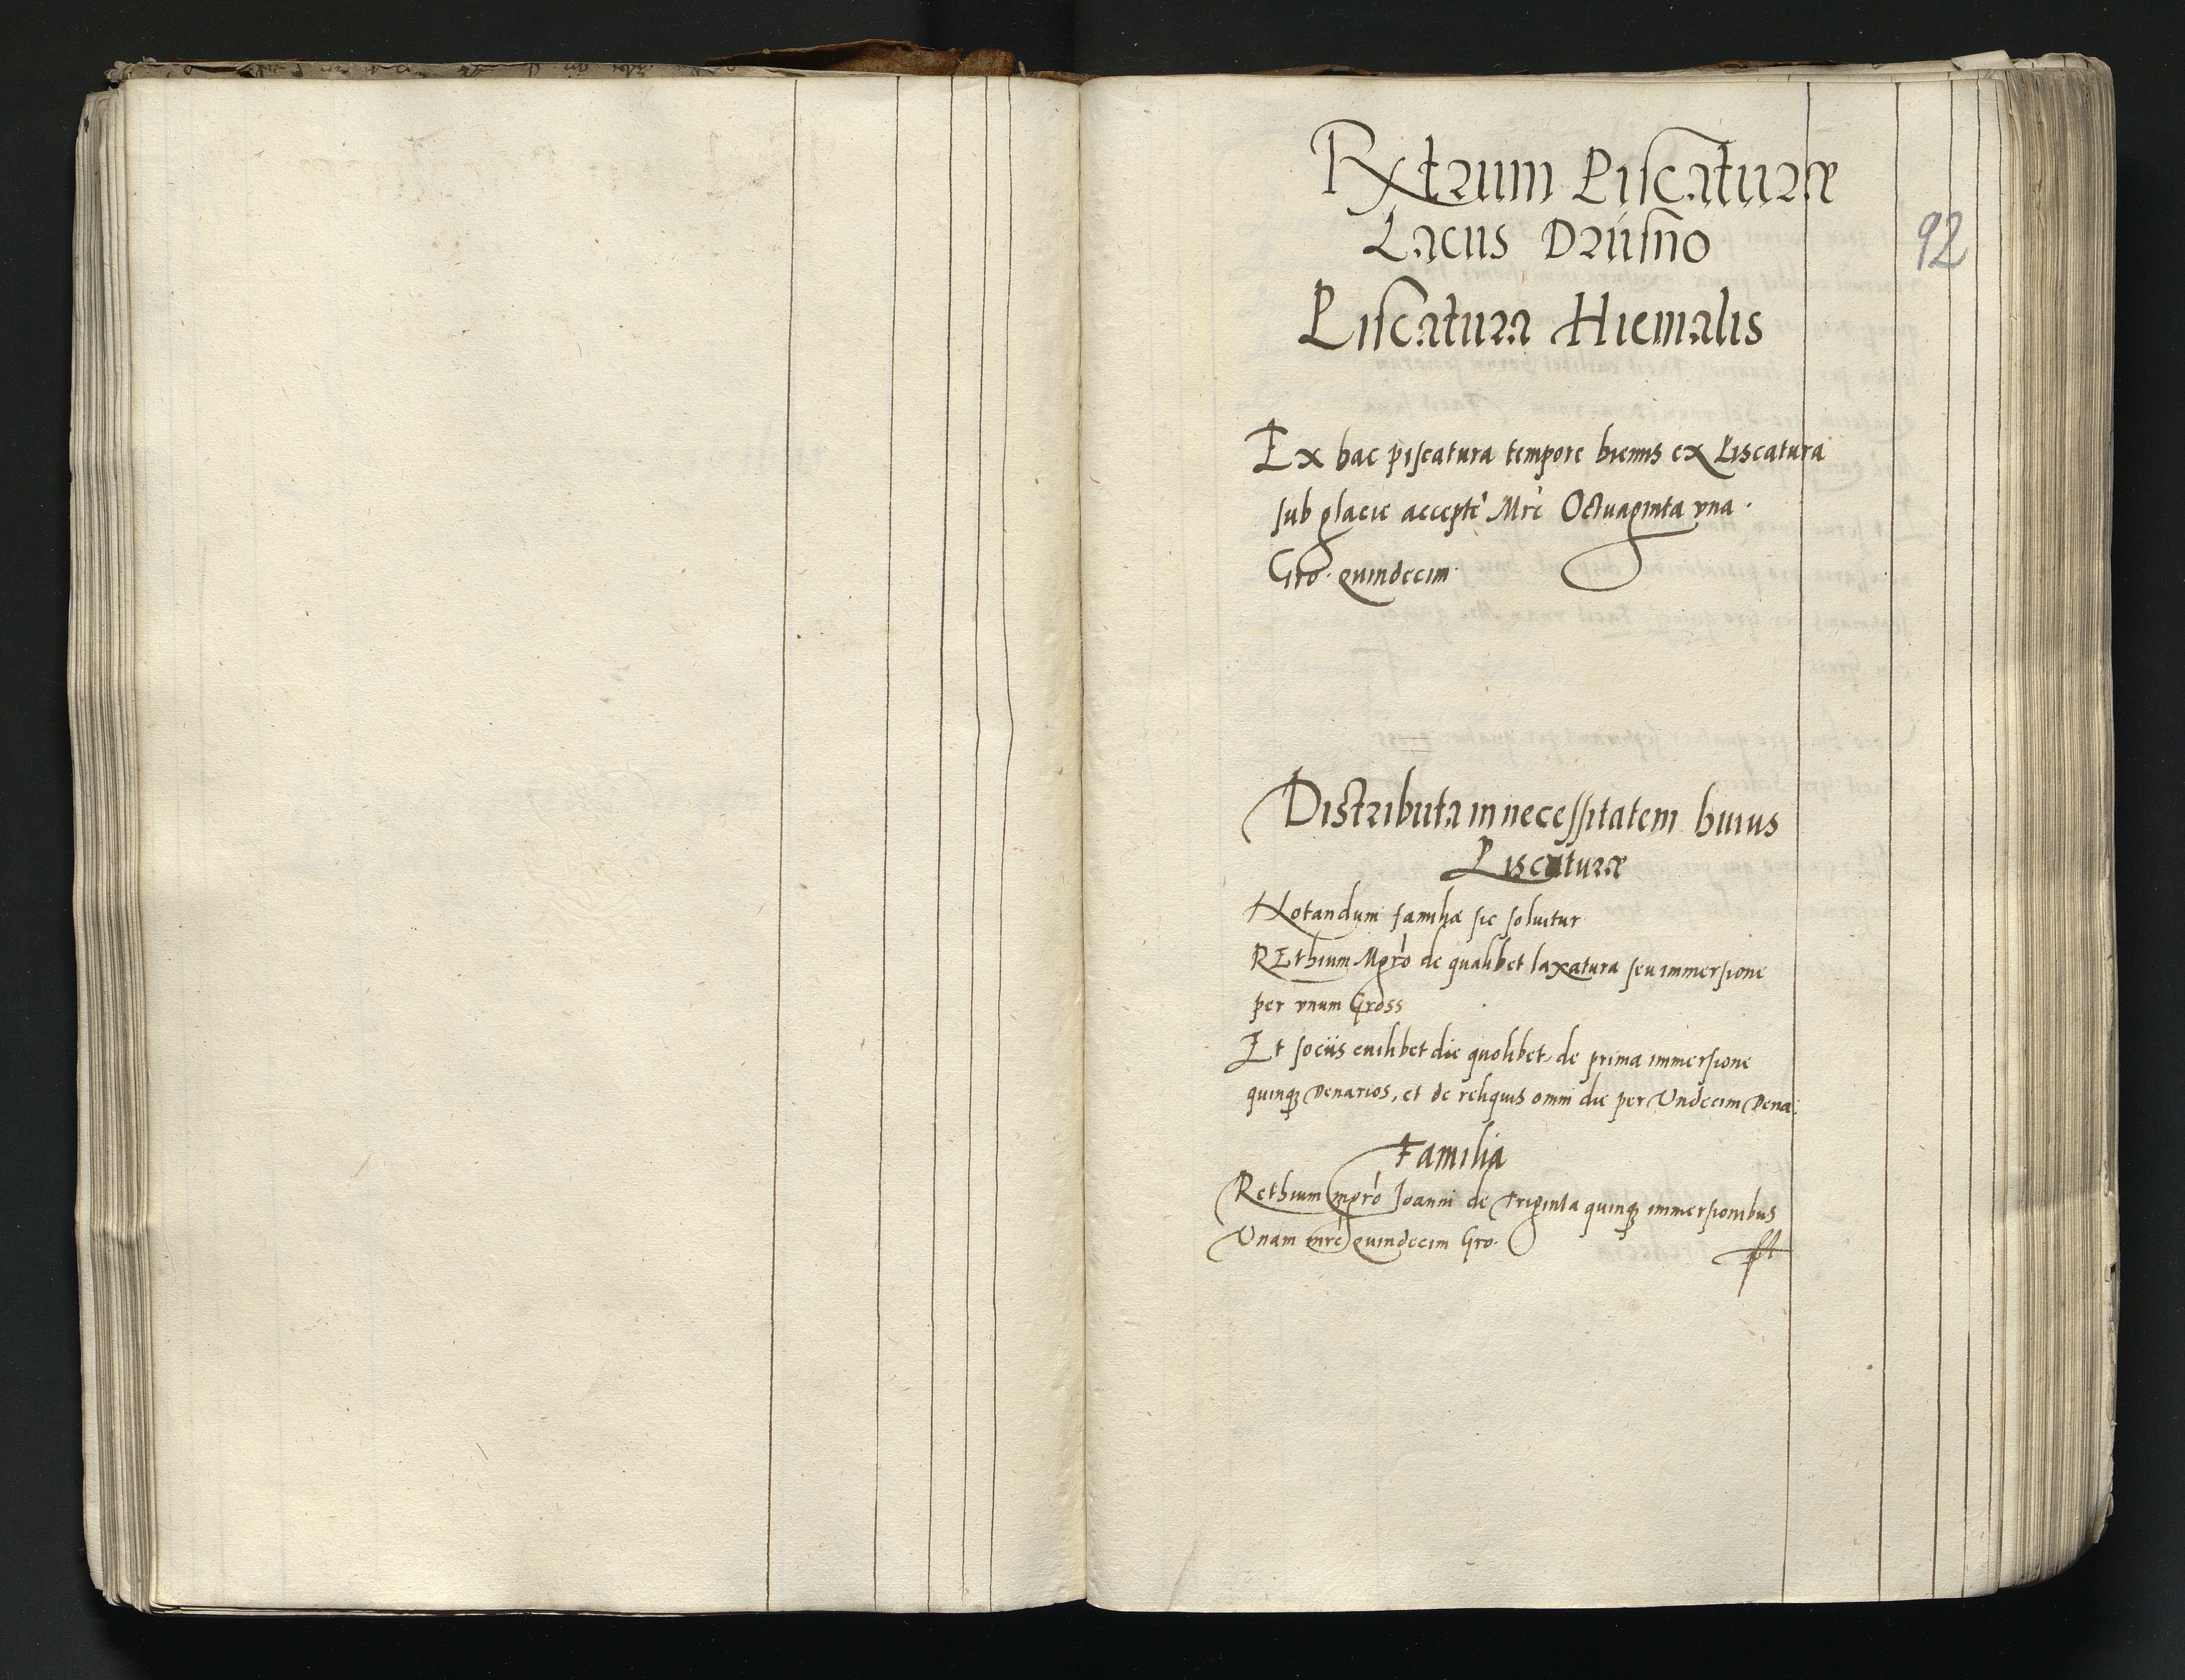 Rxtrum Piscaturæ
Lacus Drusno
92
Piscatura Hiemalis
Ex hac piscatura tempore hiemis ex Piscatura
sub glacie accepte Mrc Octuaginta vna ·
Gro · quindecim ·
Distributa in necessitatem huius
Piscaturæ
Notandum familia sic soluitur
REthium Mgro de qualibet laxatura seu immersione
per vnum Gross
Et sociis cuilibet die quolibet de prima immersione
quinqꝫ Denarios, et de reliquis omni die per Vndecim Dena:
Familia
Rethium mgro Joanni de Triginta quinqꝫ immersionibus
Vnam mrc quindecim Gro.